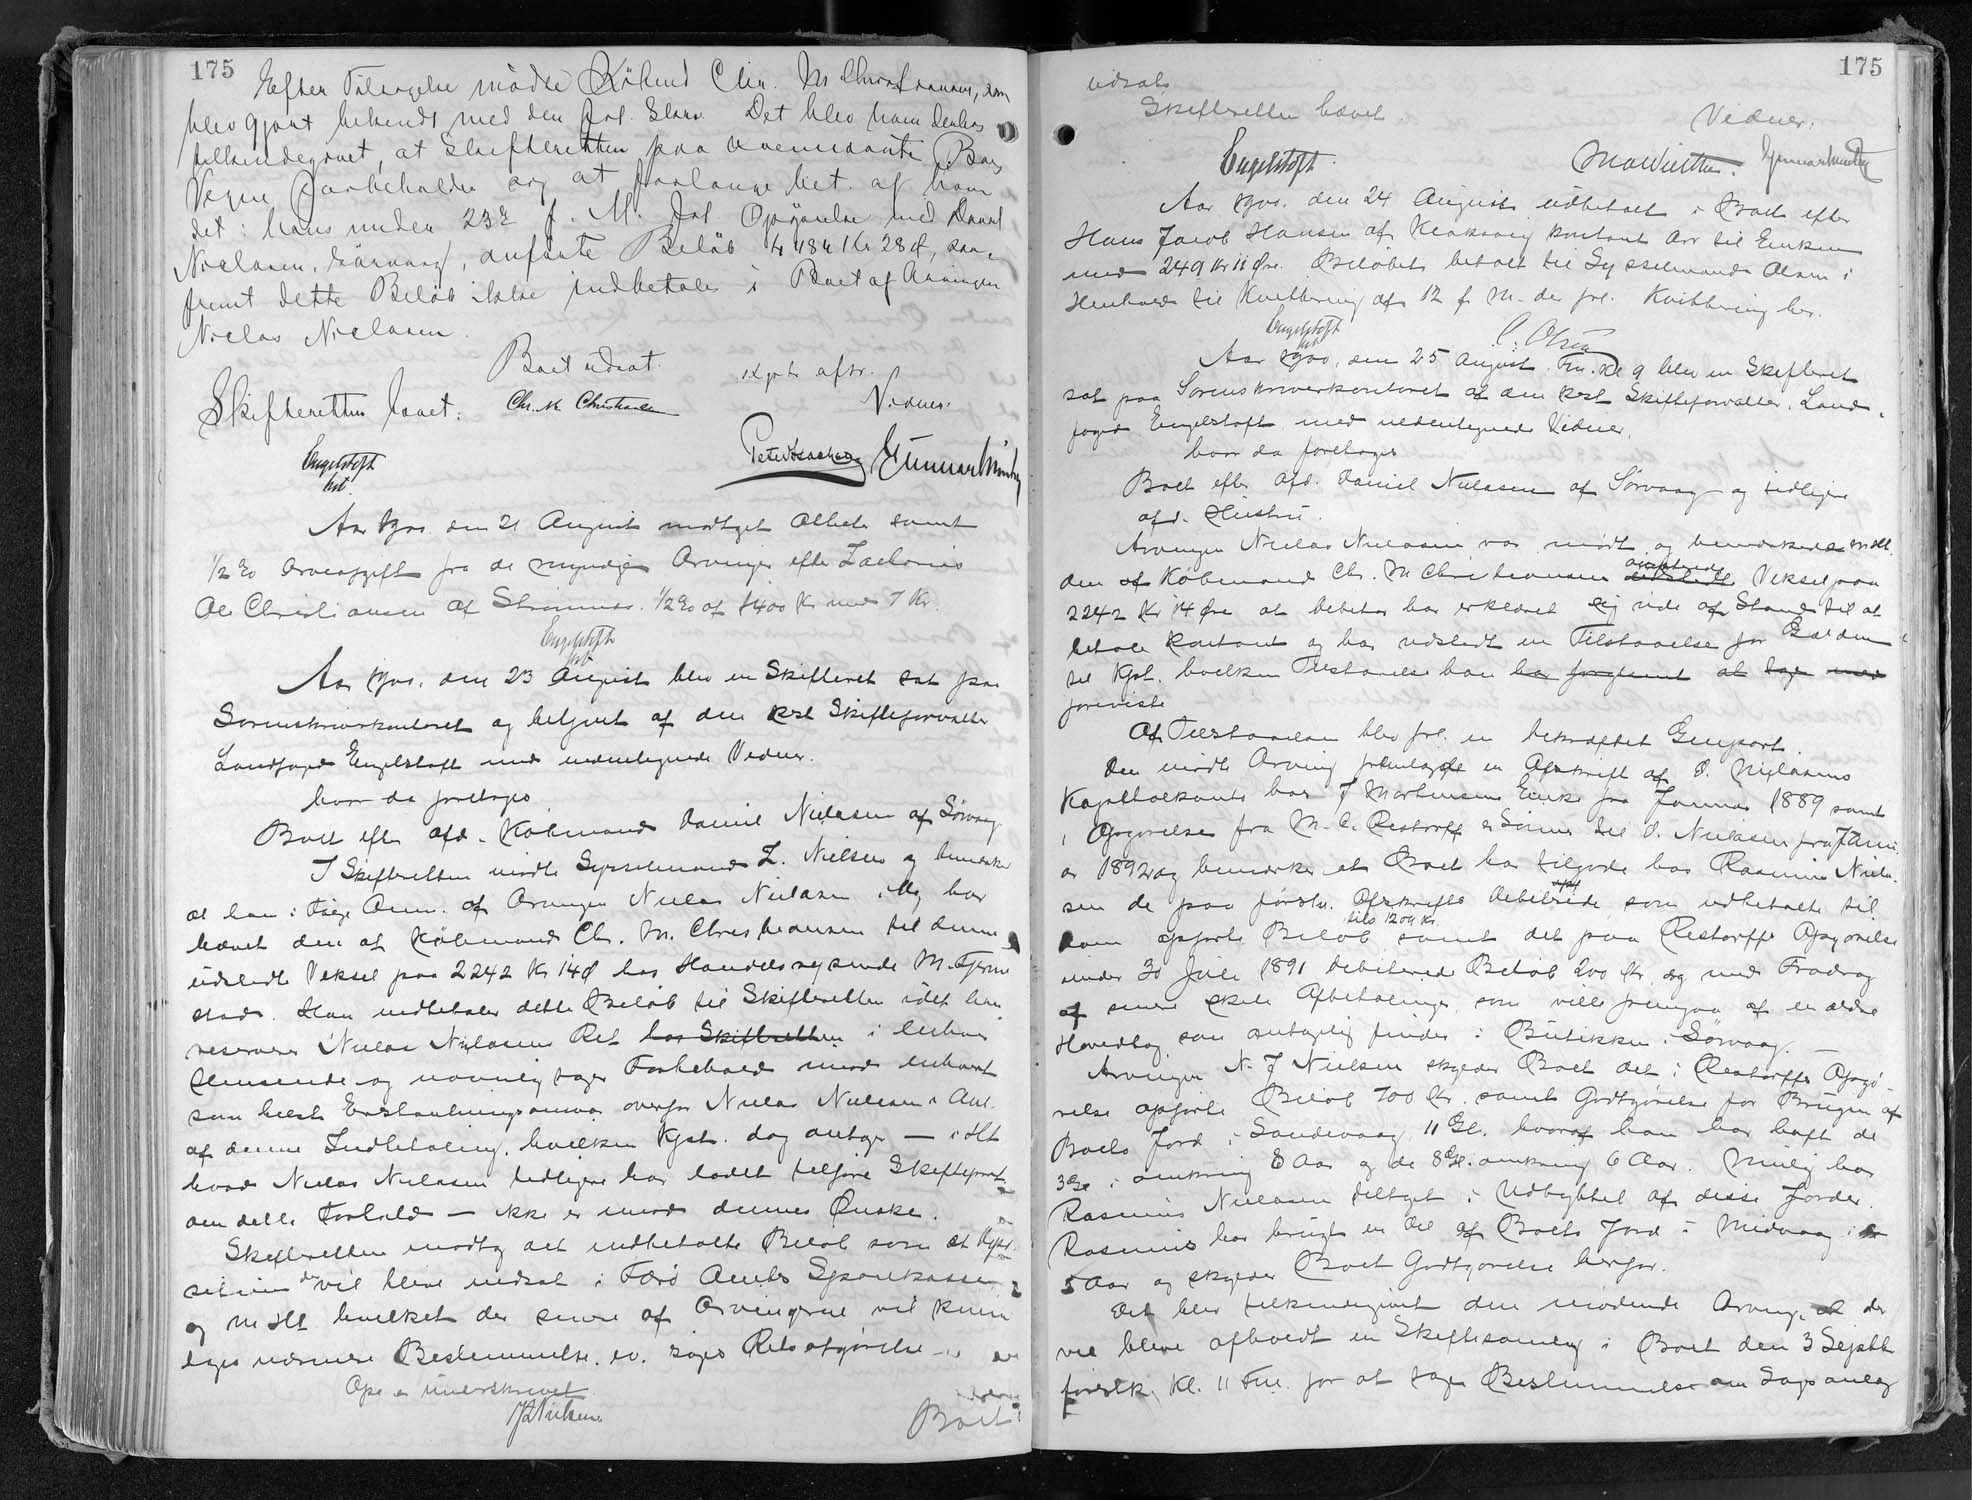 175
Efter Tilsigelse mødte Købmd Chr. M Christiansen, som
blev gjort bekendt med den Jol. Skriv. Det blev ham derhos
tilkendegivet, at Skifteretten paa ovennævnte Bos
Vegne forbeholdt sig at forlange bet. af ham
det i hans under 23 f. M. Jol. Opgørelse med Daniel
Nielasen, Sørvaag, anførte Beløb 4484 Kr 28 Ø, saa-
fremt dette Beløb ikke indbetales i Boet af Arvingen
Nielas Nielasen.
Boet udsat.
Skifteretten hævet. Chr. M. Christiansen Vidner:
Engelstoft
hst. Gunnar
Aar 1900 den 21 August modtaget Attester samt
1/2 % Arveafgift fra de myndige Arvinger efter Zacharias
Ole Christiansen af Strømnæs. 1/2 % af 1400 Kr med 7 Kr.
Engelstoft
hst
Aar 1900. den 23 August blev en Skifteret sat paa
Sorenskriverkontoret og betjent af den kst Skifteforvalter
Landfoged Engelstoft med undertegnede Vidner.
hvor da foretoges
Boet efter afd. Købmand Daniel Nielasen af Sørvaag
I Skifteretten mødte Sysselmand Z. Nielsen og bemærker
at han i Følge Anm. af Arvingen Nielas Nielasen, Mg, har
hævet den af Købmand Chr. M. Christiansen til denne
udstedte Veksel paa 2242 Kr 14 Ø hos Handelsrejsende M.
stad. Han indbetaler dette Beløb til Skifteretten idet han
reserverer Nielas Nielasens Ret hos Skifteretten i enhver
Henseende og navnlig tager Forbehold mod enhvert
som helst Erstatningsansvar overfor Nielas Nielasen i Anl.
af denne Indbetaling, hvilken Kpt. dog antager — idet
hvad Nielas Nielasen tidligere har ladet tilføre Skifteprot.
om dette Forhold — ikke er imod dennes Ønske.
Skifteretten modtog det indbetalte Beløb som et
der vil blive indsat i Færø Amts Sparekasse
og m Ht hvilket der senere af Arvingerne vil kunne
tages nærmere Bestemmelse, ev. søges Retsafgørelse
Opl. & underskrevet.
Z Nielsen
Boet
175
udsat
Skifteretten hævet
Vidner:
Engelstoft
Aar 1900. den 24 August indbetalt i Boet efter
Hans Jacob Hansen af Klaksvig kontant Arv til Enken
med 249 Kr 11 Øre. Beløbet betalt til Sysselmand Olsen i
Henhold til Kvittering af 12 f. M. der frl. Kvittering her.
Engelstoft
hst O. Olsen
Aar 1900, den 25 August Fm. Kl 9 blev en Skifteret
sat paa Sorenskriverkontoret af den kst Skifteforvalter, Land-
foged Engelstoft med undertegnede Vidner.
hvor da foretoges
Boet eftr afd. Daniel Nielasen af Sørvaag og tidligere
afd. Hustru.
Arvingen Nielas Nielasen var mødt og bemærkede m Ht
den af Købmand Chr. M Christiansen udstedte Veksel paa
2242 Kr 14 Øre at debitor har erklæret sig ude af Stand til at
betale kontant og har udstedt en Tilstaaelse for Gælden
til Kpt. hvilken Tilstaaelse han har forglemt at tage med
foreviste
Af Tilstaaelsen blev frl. en bekræftet Genpart.
Den mødte Arving fremlagde en Afskrift af D. Nielasens
Kapitalkonto hos J Mortensens Enke fra Januar 1889 samt
1 Opgørelse fra M. C. Restorff & Sønner til D. Nielasen fra
ar 1892 og bemærker at Boet har tilgode hos Rasmus Niela-
sen de paa første Afskrifts Debetside som udbetalte til
ham opførte Beløb tils 1209 Kr samt det paa Restorffs Opgørelse
under 30 Juli 1891 debiterede Beløb 200 Kr. og med Fradrag
af senere skete Afbetalinger, som ville fremgaa af en ældre
Hovedbog som antagelig findes i Butikken i Sørvaag. —
Arvingen N. J Nielsen skylder Boet det i Restorffs Opgø-
relse opførte Beløb 700 Kr. samt Godtgørelse for Brugen af
Boets Jord i Sandevaag 11 Gl. hvoraf han har haft de
3 Gl. i omkring 8 Aar og de 8 Gl. omkring 6 Aar. Mulig har
Rasmus Nielasen deltaget i Udbyttet af disse Jorder.
Rasmus har brugt en Del af Boets Jord i Midvaag i
5 Aar og skylder Boet Godtgørelse herfor.
Det blev tilkendegivet den mødende Arving, at der
vil blive afholdt en Skiftesamling i Boet den 3 Septbr
førstk, Kl. 11 Fm. for at tage Bestemmelse om Sags anlæg